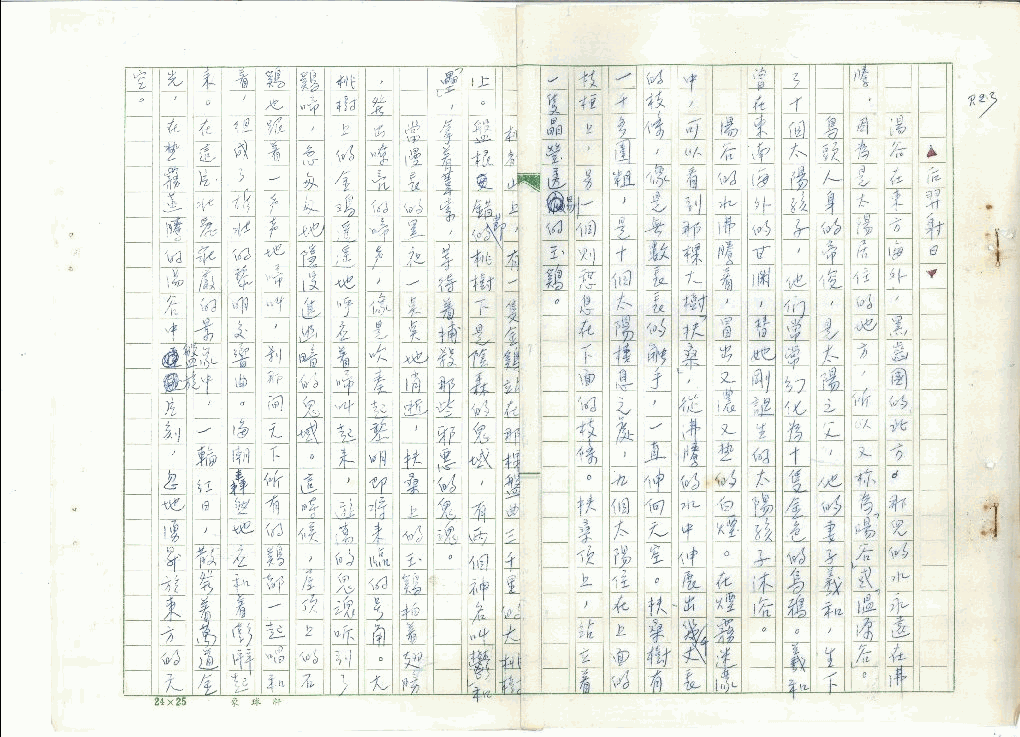 R23
▲后羿射日▼
湯谷在東方海外，黑齒國的北方。那兒的水永遠在沸
騰，因為是太陽居住的地方，所以又称為「陽谷」或「溫源谷」。
鳥頭人身的帝俊，是太陽之父，他的妻子羲和，生下
了十個太陽孩子，他們常常幻化為十隻金色的烏鴉。羲和
曾在東南海外的甘淵，替她剛誕生的太陽孩子沐浴。
湯谷的水沸騰着，冒出又濃又熱的白煙。在煙霧迷濛
中，可以看到那棵大樹「扶桑」，從沸騰的水中伸展出幾千丈長
的枝條，像是無數長長的觸手，一直伸向天空。扶桑樹有
一千多圍粗，是十個太陽棲息之處，九個太陽住在上面的
枝椏上，另一個則憩息在下面的枝條。扶桑頂上，站立着
一隻晶瑩透剔的玉鷄。
桃都山上，有一隻金鷄站在那棵盤曲三千里的大桃樹
上。盤根錯節的桃樹下是陰森的鬼域，有兩個神名叫鬱和
壘，拿着葦索，等待着捕殺那些邪惡的鬼魂。
當漫長的黑夜一吳吳地消逝，扶桑上的玉鷄拍着翅膀
，發出嘹亮的啼聲，像是吹奏起黎明即將來臨的号角。大
桃樹上的金鷄遥遠地呼应着啼叫起來，遊蕩的鬼魂听到了
鷄啼，急匆匆地隱沒進幽暗的鬼域。這時候，屋頂上的石
鷄也跟着一声声地啼叫，刹那間天下所有的鷄都一起唱和
着，組成了於水的黎明交響曲。海潮轟然地应和着澎湃起
來。在這片水庄嚴的景象中，一輪紅日，散發着萬道金
光，在熱霧迷騰的湯谷中盤旋片刻，忽地湧昇於東方的天
空。
24×25